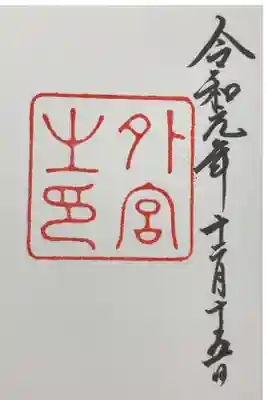 令和元年十二月十五日
外宮
之印